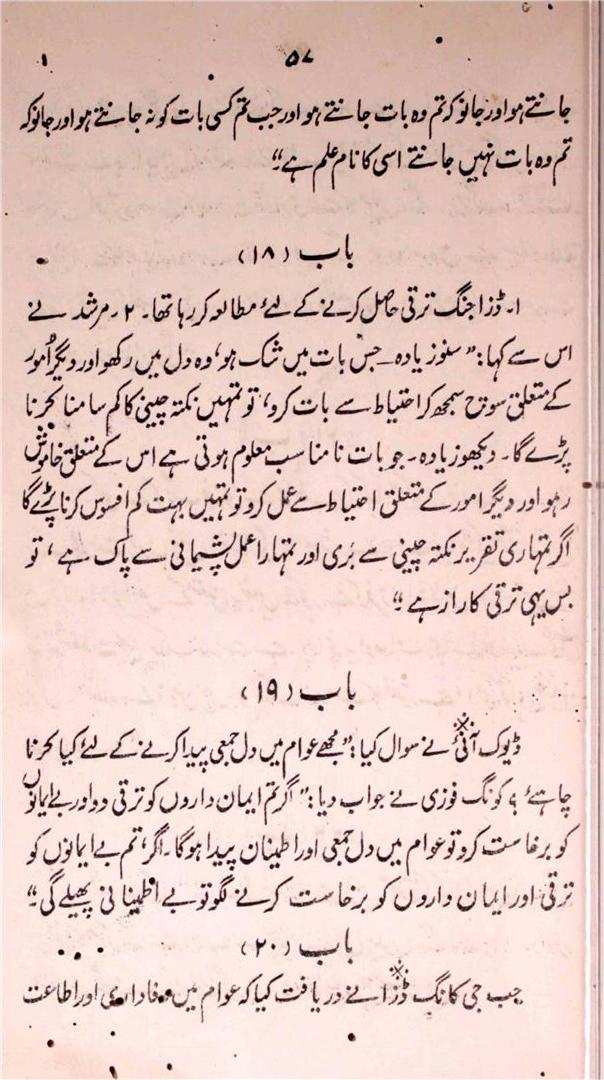 ۵۷
جانتے ہو اور جانو کہ تم وہ بات جانتے ہو اور جب تم کسی بات کو نہ جانتے ہو اور جانو کہ
تم وہ بات نہیں جانتے اسی کا نام علم ہے۔"
باب (۱۸)
۱۔ ڈزاجنگ ترقی حاصل کرنے کے لئے مطالعہ کر رہا تھا۔ ۲۔ مرشد نے
اس سے کہا: "سنو زیادہ۔ جس بات میں شک ہو، وہ دل میں رکھو اور دیگر اُمور
کے متعلق سوچ سمجھ کر احتیاط سے بات کرو، تو تمہیں نکتہ چینی کا کم سامنا کرنا
پڑے گا۔ دیکھو زیادہ۔ جو بات نامناسب معلوم ہوتی ہے اس کے متعلق خاموش
رہو اور دیگر امور کے متعلق احتیاط سے عمل کرو تو تمہیں بہت کم افسوس کرنا پڑے گا
اگر تمہاری تقریر نکتہ چینی سے بَری اور تمہارا عمل پشیمانی سے پاک ہے، تو
بس یہی ترقی کا راز ہے۔"
باب (۱۹)
ڈیوک آئی نے سوال کیا: "مجھے عوام میں دل جمعی پیدا کرنے کے لئے کیا کرنا
چاہئے؟ کونگ فوزی نے جواب دیا: "اگر تم ایمان داروں کو ترقی دو اور بے ایمانوں
کو برخاست کرو تو عوام میں دل جمعی اور اطمینان پیدا ہوگا۔ اگر، تم بے ایمانوں کو
ترقی اور ایمان داروں کو برخاست کرنے لگو تو بے اطمینانی پھیلے گی۔"
باب (۲۰)
جب جی کانگ ڈزا نے دریافت کیا کہ عوام میں وفاداری اور اطاعت